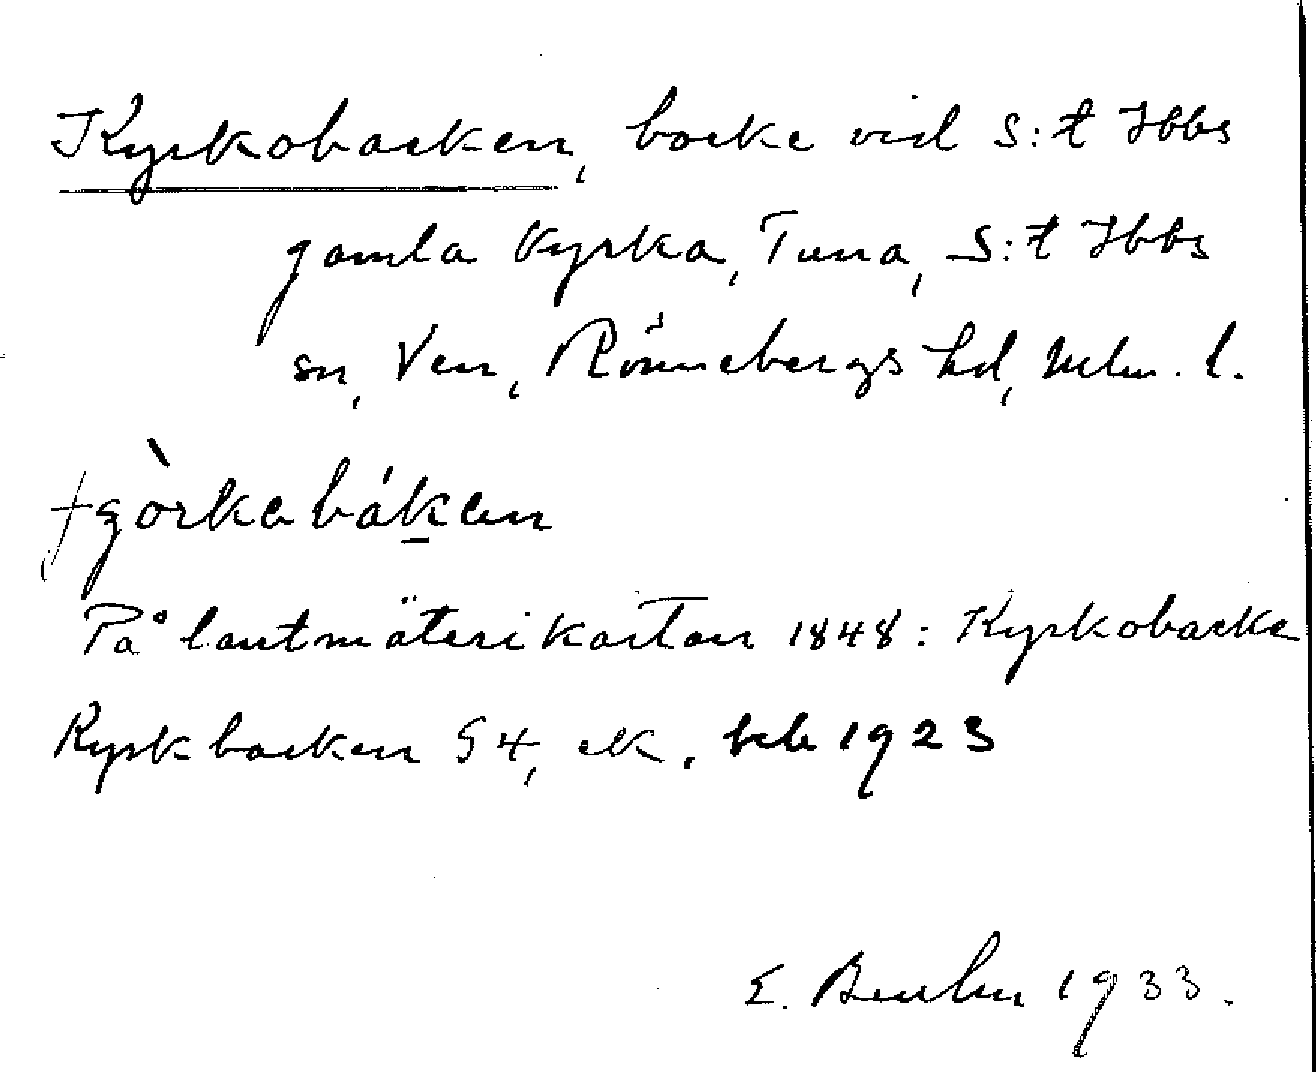 Kyrkobacken, backe vid S:t Ibbs
gamla kyrka, Tuna, S:t Ibbs
sn, Ven, Rönnebergs hd, Mlm. l.
På lantmäterikartan 1848: Kyrkobacke
Kyrkbacken 54, ek. bl. 1923
E. 1933.